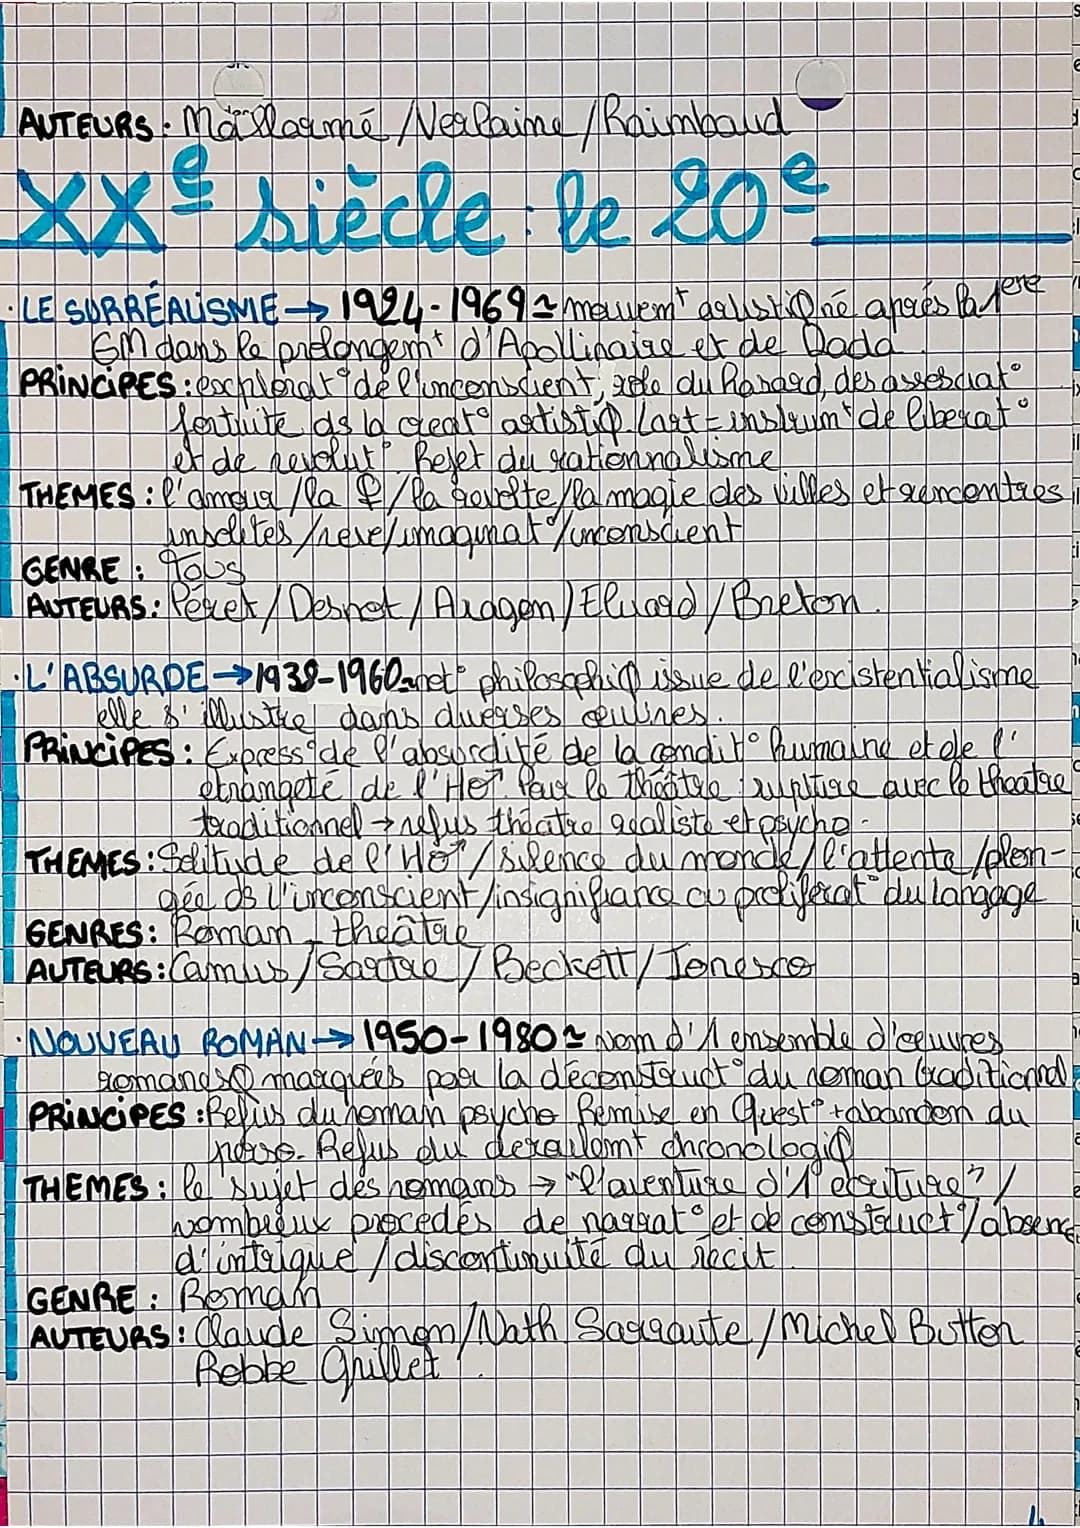 AUTEURS : Mallarmé / Verlaine / Raimbaud
XXe siècle : le 20e
· LE SURRÉALISME → 1924-1969 ≃ mouvemt artistiQue après la 1ere
GM dans le prolongemt d'Apollinaire et de Dada.
PRINCIPES : explorat° de l'inconscient, role du hasard, des associat°
fortuite ds la creat° artistiQ. L'art = instrumt de liberat°
et de revolut°. Rejet du rationnalisme
THEMES : l'amour / la / la revolte / la magie des villes et rencontres
insolites / reve / imaginat° / inconscient
GENRE : Tous
AUTEURS : Péret / Desnot / Aragon / Eluard / Breton.
· L'ABSURDE → 1938-1960 ≃ not° philosophiQ issue de l'existentialisme
elle s'illustre dans diverses œuvres.
PRINCIPES : Express° de l'absurdité de la condit° humaine et de l'
étrangeté de l'Ho. Pour le théâtre : rupture avec le theatre
traditionnel → refus théatre realiste et psycho.
THEMES : Solitude de l'Ho / silence du monde / l'attente / plon-
gée ds l'inconscient / insignifiance ou proliferat° du langage
GENRES : Roman - théâtre
AUTEURS : Camus / Sartre / Beckett / Ionesco
· NOUVEAU ROMAN → 1950-1980 ≃ Nom d'1 ensemble d'œuvres
romanesQ marquées par la déconstruct° du roman traditionnel
PRINCIPES : Refus du romain psycho Remise en Quest° + abandon du
perso. Refus du deroulemt chronologiQ
THEMES : le sujet des romans → "l'aventure d'1 ecriture" /
nombreux procédés de narrat° et de construct° / absence
d'intrigue / discontinuité du récit.
GENRE : Roman
AUTEURS : Claude Simon / Nath Sarraute / Michel Button
Robbe Grillet.